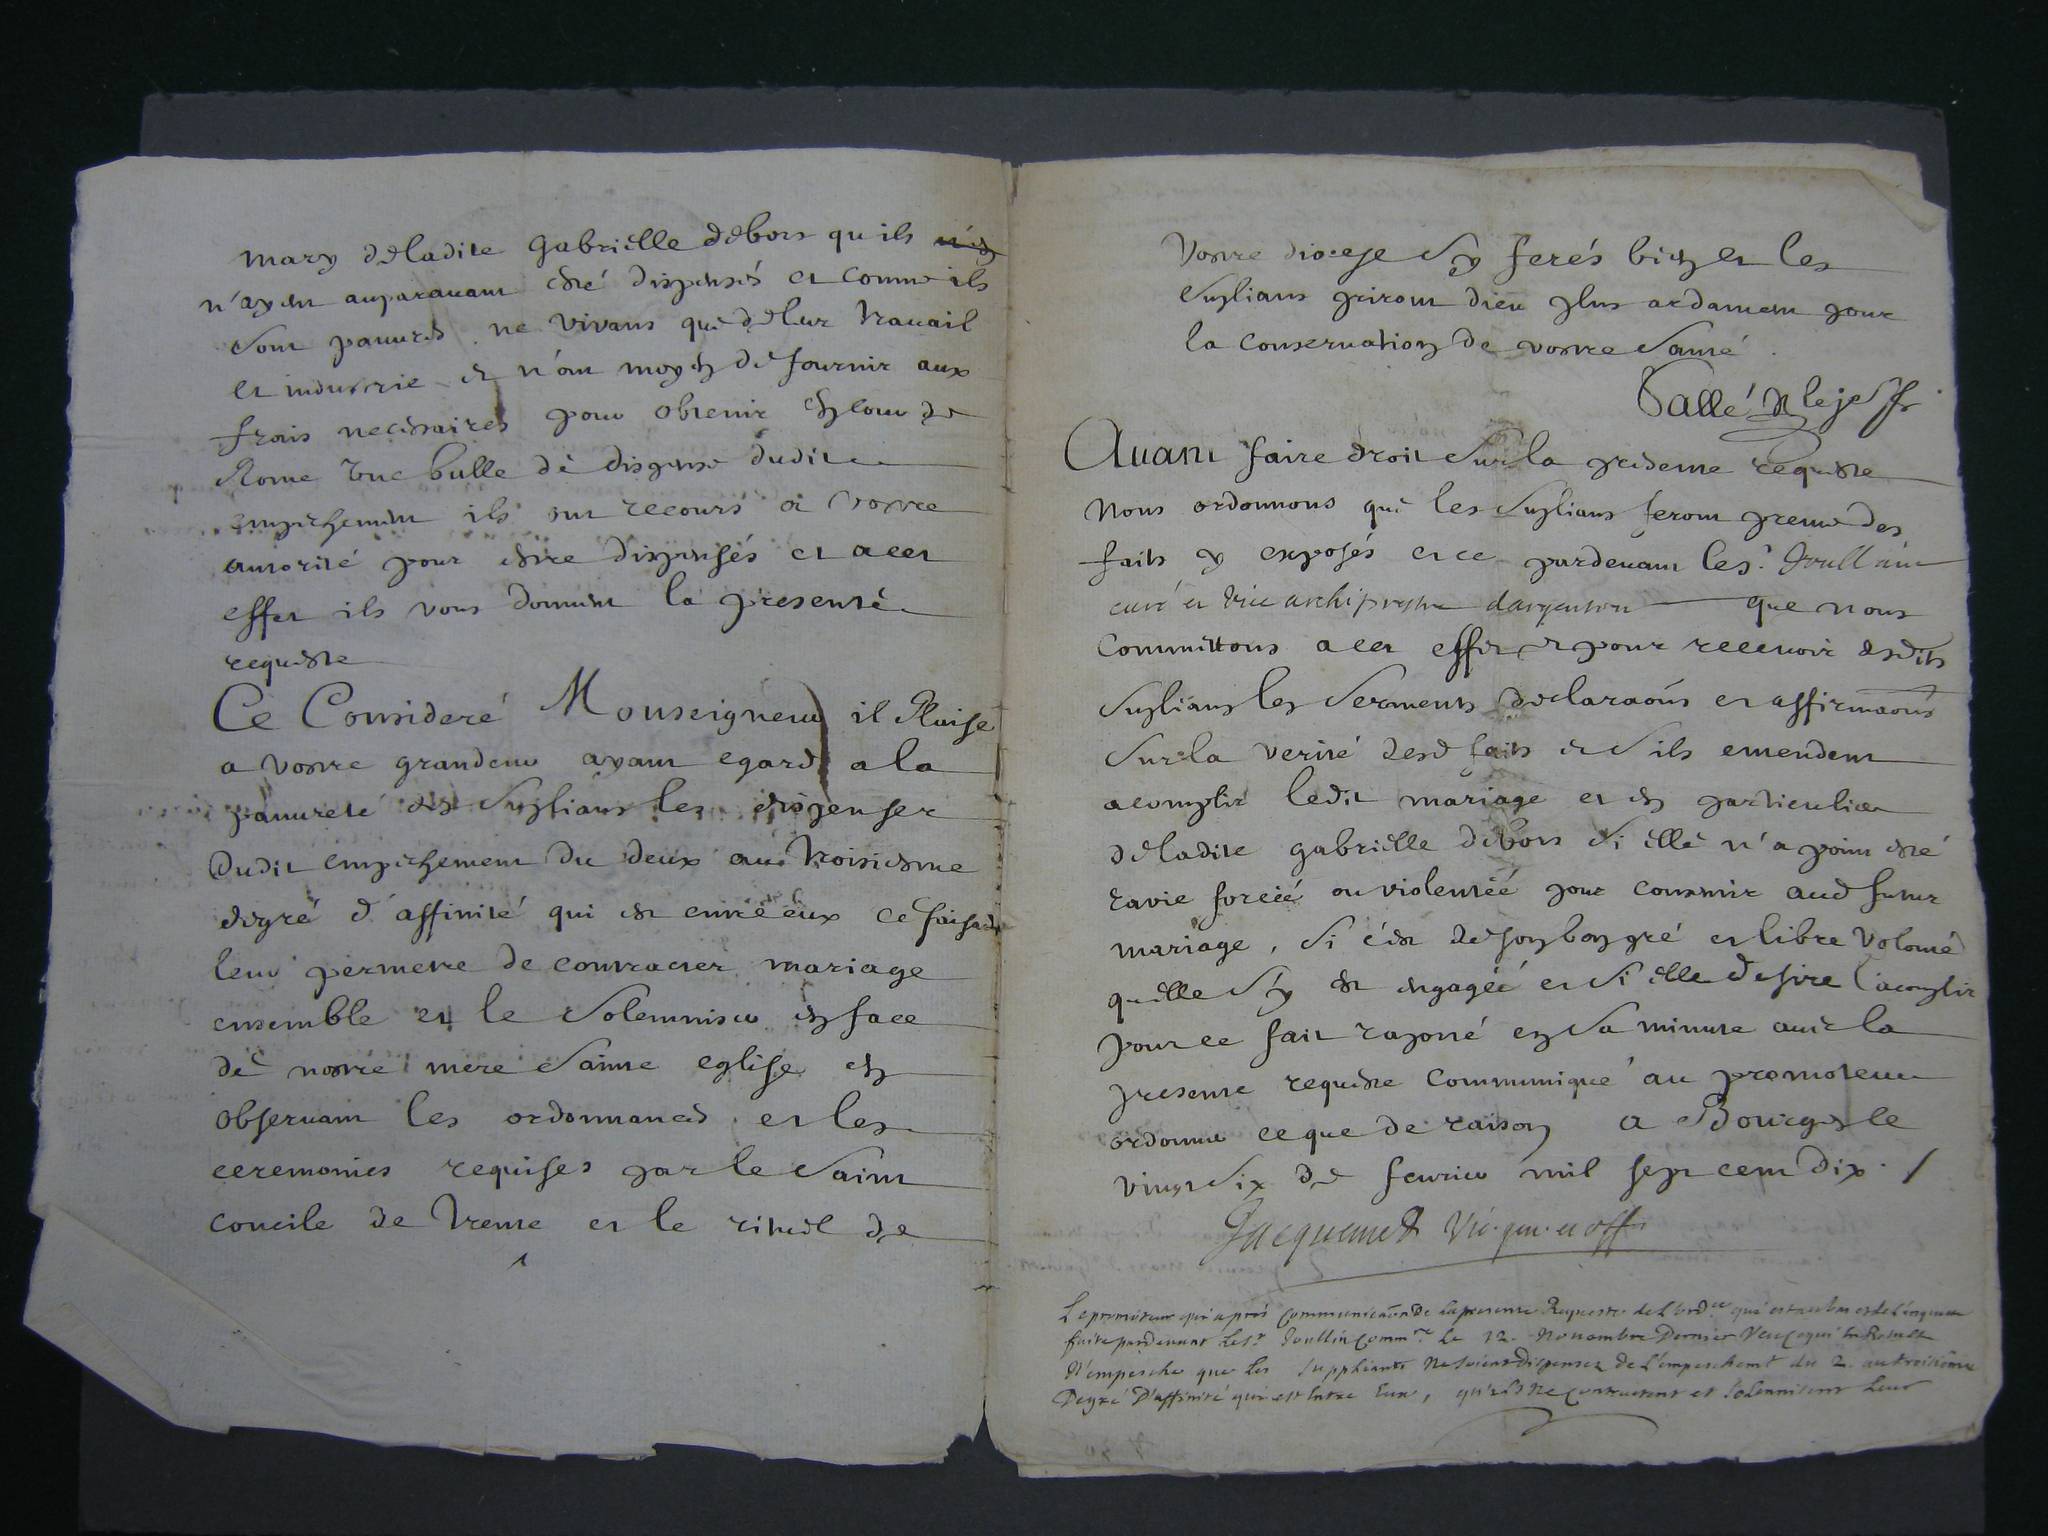 mary deladite Gabriëlle debors qu ils
n'ayent auparavant esté dispensés et comme ils
sont pauures ne vivans que deleur trauail
et industrie et n'ont moyen de fournir aux
frais necessaires pour obtenir en cour de
Rome une bulle de dispense dudit
empeschement ils ont recours a vostre
autorité pour estre dispensés et a cet
effet ils vous donnent la presente
requeste
Ce Consideré Monseigneur il Plaise
a vostre grandeur ayant egard a la
pauureté des Suplians les dispenser
dudit empeschement du deux au troisiesme
degré d'affinité qui est entre eux ce faisant
leur permetre de contracter mariage
ensemble et le Solemniser en face
de nostre mere Sainte eglise en
observant les ordonnances et les
ceremonies requises par le Saint
concile de trente et le rituel de
vostre diocese Sy ferés bien et les
Suplians priront dieu plus ardament pour
la conseruation de vostre Santé.
Auant faire droit Sur la presente requeste
Nous ordonnons que les Suplians feront preuue des
faits y exposés et ce pardeuant le s.r Joullain
curé et vice archiprestre dargenton que nous
Committons a cet effet et pour receuoir desdits
Suplians les Serments declaraons et affirmaons
Sur la verité desd faits et S ils entendent
acomplir ledit mariage et en particulier
deladite gabriëlle debors Si elle n'a point esté
ravie forcée ou violentée pour consentir aud futur
mariage, Si c'est de son bon gré et libre volonté
qu'elle S'y est engagée et Si elle desire l'acomplir
pour ce fait raporté en Sa minute auec la
presente requeste communiqué au promoteur
ordonné ce que de raison a Bourges le
vingt Six de feurier mil sept cent dix /
Jacquemet Vic. gen. et off.
Le promoteur qui a pris communicaon de la presente Requeste de l'ord.ce qui est au bas et de l'enqueste
faite pardevant le s.r Joullin comm.re le 12. Novembre Dernier Veu ce qui En Resulte
N'empesche que les supphiants Ne soient dispensez de l'empeschemt du 2. au troisième
Degré D'affinité qui est Entre Eux, qu'ils Ne contractent et solennisent Leur